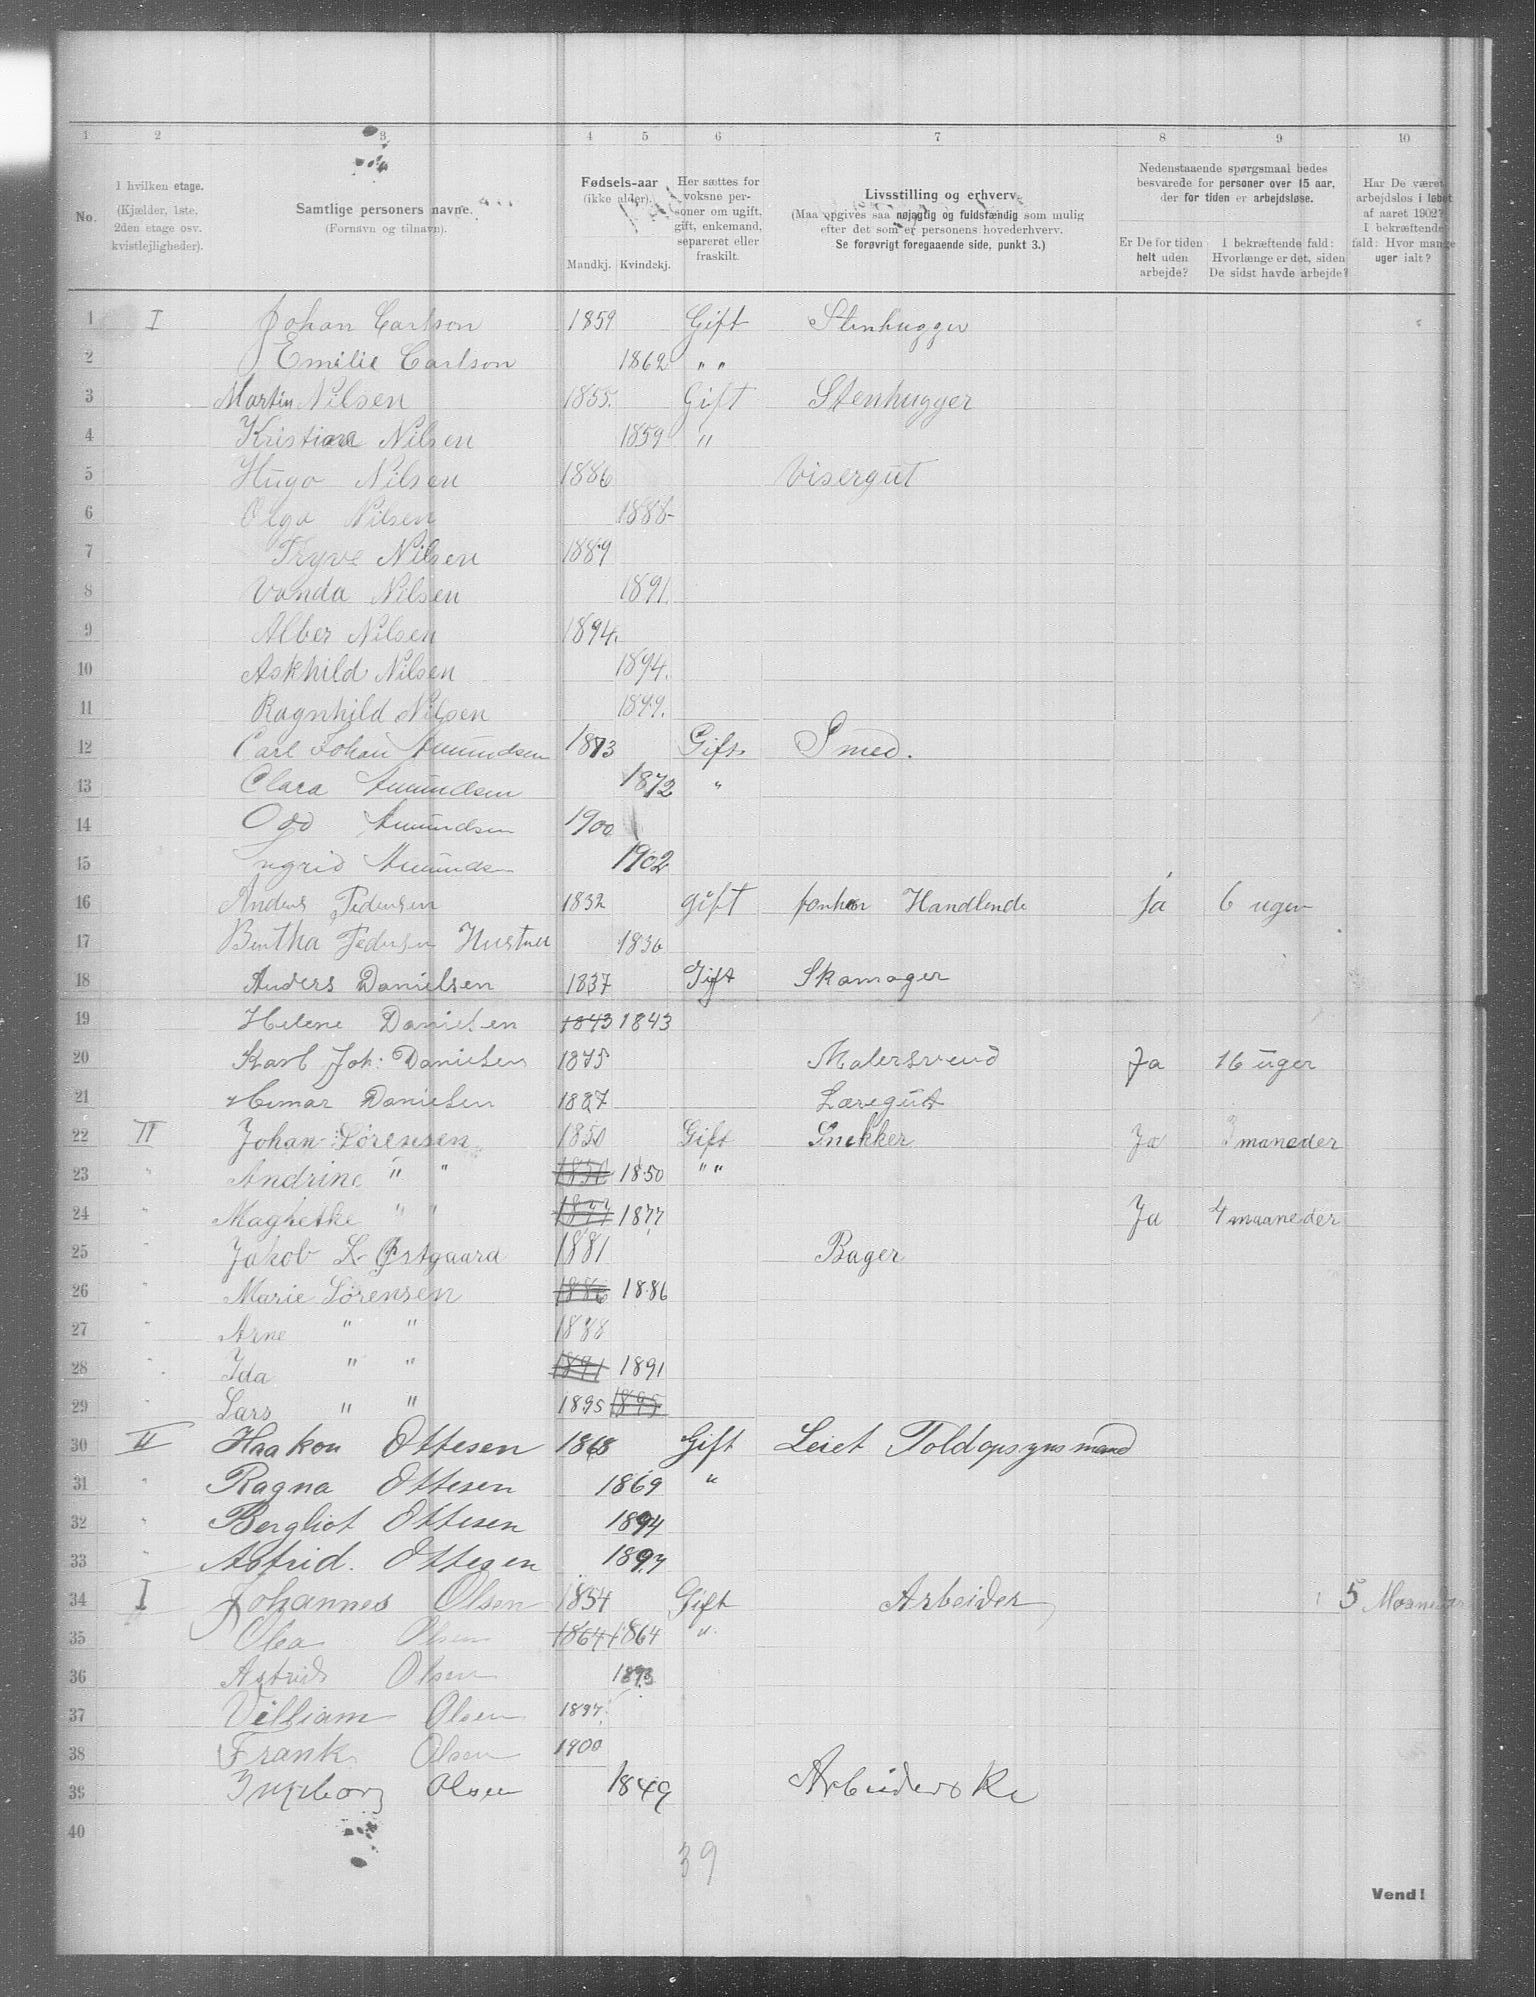 1 2 3 4 5 6 7 8 9 10
No.
I hvilken etage.
(Kjælder, 1ste,
2den etage osv.
kvistlejligheder).
Samtlige personers navne.
(Fornavn og tilnavn).
Fødsels-aar
(ikke alder).
Mandkj. Kvindekj.
Her sættes for
voksne per-
soner om ugift,
gift, enkemand,
separeret eller
fraskilt.
Livsstilling og erhverv.
(Maa opgives saa nøjagtig og fuldstændig som mulig
efter det som er personens hovederhverv.
Se forøvrigt foregaaende side, punkt 3.)
Nedenstaaende spørgsmaal bedes
besvarede for personer over 15 aar,
der for tiden er arbejdsløse.
Er De for tiden
helt uden
arbejde?
I bekræftende fald:
Hvorlænge er det, siden
De sidst havde arbejde?
Har De været
arbejdsløs i løbet
af aaret 1902?
I bekræftende
fald: Hvor mange
uger ialt?
1 I Johan Carlson 1859 Gift Stenhugger
2 Emilie Carlson 1862 " "
3 Martin Nilsen 1855. Gift Stenhugger
4 Kristiana Nilsen 1859 "
5 Hugo Nilsen 1886 Visergut
6 Olga Nilsen 1888
7 Tryve Nilsen 1889
8 Vanda Nilsen 1891
9 Alber Nilsen 1894.
10 Askhild Nilsen 1894.
11 Ragnhild Nilsen 1899.
12 Carl Johan Amundsen 1873 Gift Smed.
13 Clara Amundsen 1872 "
14 Odd Amundsen 1900
15 Ingrid Amunds 1902
16 Anders Pedersen 1832 gift Handlende Ja 6 uger
17 Bertha Pedersen Hustru 1836
18 Anders Danielsen 1837 Gift Skomager
19 Helene Danielsen 1843 1843
20 Karl Joh: Danielsen 1875 Malersvend Ja 16 uger
21 Danielsen 1887 Læregut
22 II Johan Sørensen 1850 Gift Snekker Ja 3 maneder
23 " Andrine " " 1850 1850 " "
24 " Maghetke " " 1877 1877 Ja 4 maaneder
25 " Jakob L. Østgaard 1881 Bager
26 " Marie Sørensen 1886 1886
27 " Arne " " 1888
28 " Ida " " 1891 1891
29 " Lars " " 1895 1895
30 II Haakon Ottesen 1868 Gift Leiet Toldopsynsmand
31 " Ragna Ottesen 1869 "
32 " Bergliot Ottesen 1894
33 " Astrid. Ottesen 1897
34 I Johannes Olsen 1854 Gift Arbeider 5 Maaneder
35 Olea Olsen 1864 1864 "
36 Astrid Olsen 1893
37 Villiam Olsen 1897
38 Frank Olsen 1900
39 Ingeborg Olsen 1849 Arbeiderske
40
39
Vend!